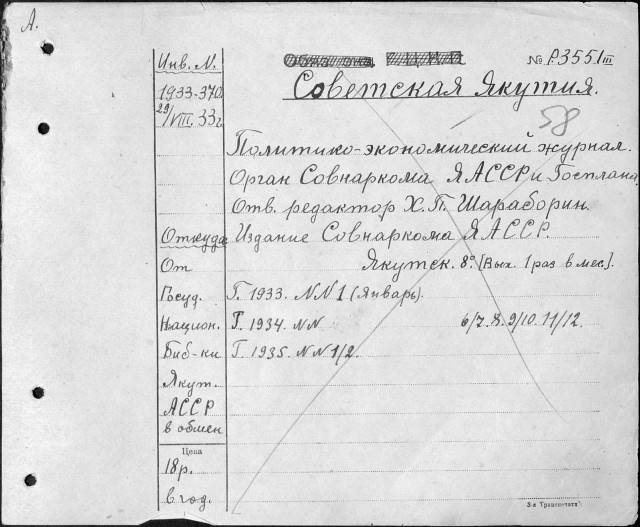 А.
Инв. N.
№ P.3551/III
1933-370
Советская Якутия.
29/VIII. 33г.
58
Политико-экономический журнал.
Орган Совнаркома ЯАССР и Госплана
Отв. редактор Х.П. Шараборин.
Откуда Издание Совнаркома ЯАССР.
От Якутск. 8º. [Вых. 1 раз в мес].
Госуд. Г. 1933. NN 1 (Январь).
Национ. Г. 1934. NN 6/7. 8. 9/10. 11/12.
Биб-ки Г. 1935. NN 1/2.
Якут.
АССР
в обмен
Цена
18 р.
в год.
3-я Транспечати